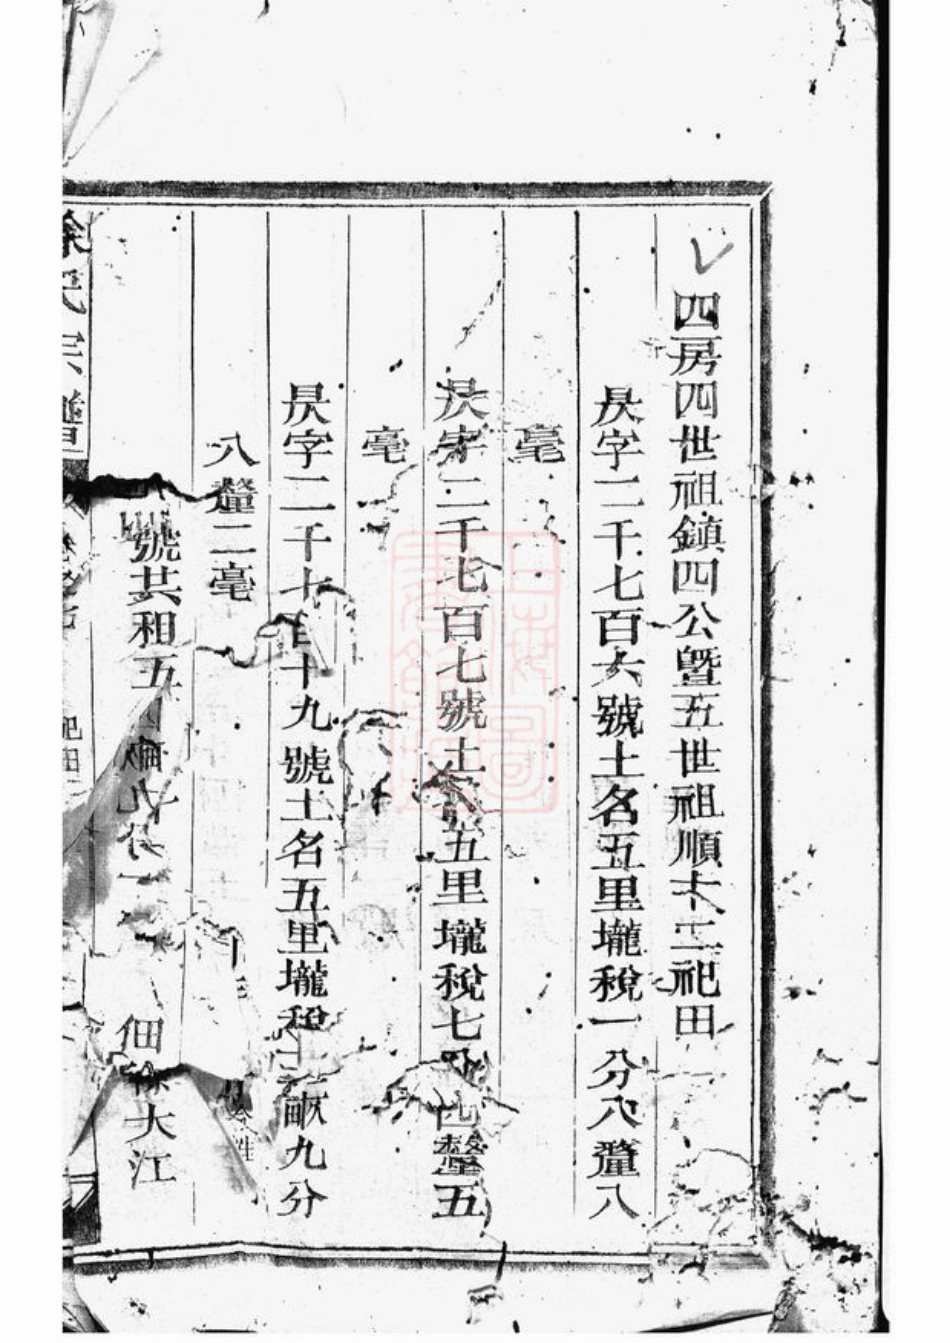 四房四世祖鎮四公暨五世祖順十二祀田
昃字二千七百六號土名五里壠稅一分八釐八
毫
昃字二千七百七號土名五里壠稅七分四釐五
毫
昃字二千七百十九號土名五里壠稅畝九分
八釐二毫
號共租五
佃徐大江
徐氏宗譜
祀田